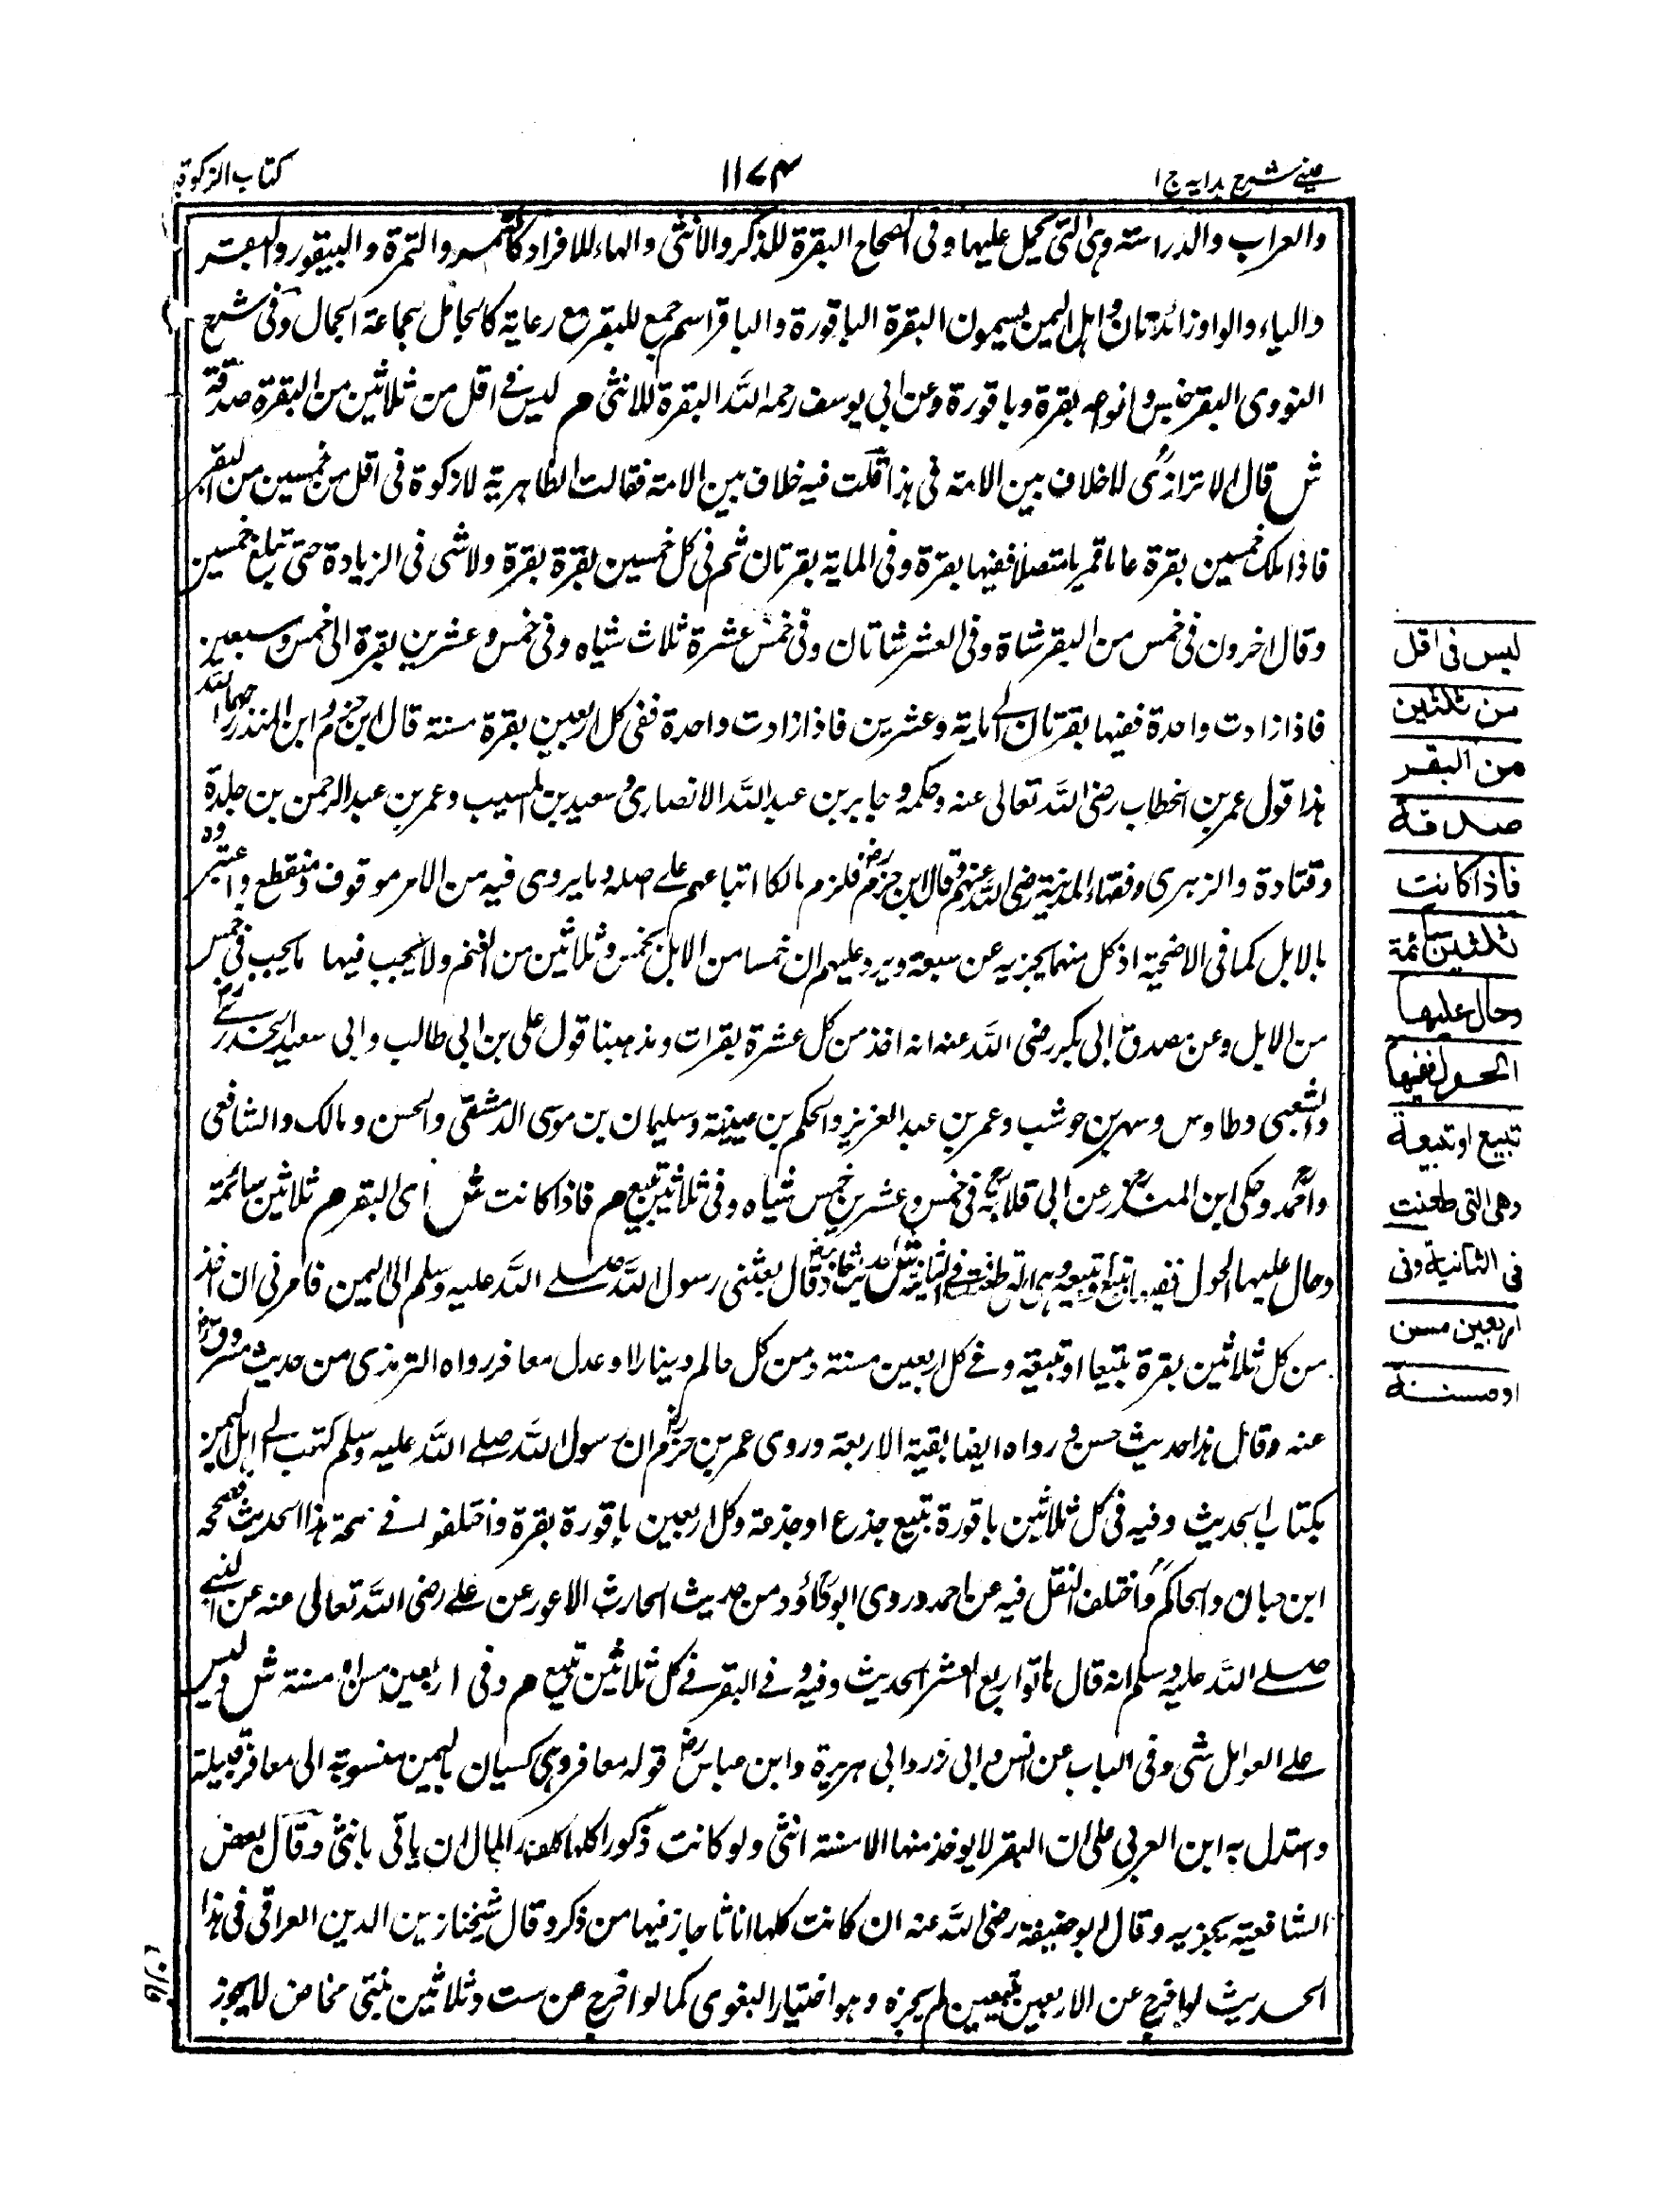 عينے شرح ہدايہ ج ا
١١٧٤
كتاب الزكوة
والعراب والدراستہ وہى التى يحمل عليہا وفى الصحاح البقرة للذكر والانثى والہاء للافراد كالتمر والتمرة والبيقور والبقر
والياء والواو زائدتان واہل اليمن يسمون البقرة الباقورة والباقر اسم جمع للبقر مع رعاية كالجامل بجماعة الجمال وفى شرح
النووى البقر جنس وانوعہ بقرة وباقورة وعن ابى يوسف رحمہ اللہ البقرة للانثى م ليس فے اقل من ثلاثين من البقرة صدقة
ش قال الاترازى لاخلاف بين الامتہ فى ہذا قلت فيہ خلاف بين الامتہ فقالت الظاہرية لازكوة فى اقل من خمسين من البقر
فاذا ملك خمسين بقرة عاما قمريا متصلا ففيہا بقرة وفى الماية بقرتان ثم فى كل خمسين بقرة بقرة ولاشى فى الزيادة حتى تبلغ خمسين
وقال اخرون فى خمس من البقر شاة وفى العشر شاتان وفى خمس عشرة ثلاث شياہ وفى خمس وعشرين بقرة الى خمس وسبعين
فاذا زادت واحدة ففيہا بقرتان لے ماية وعشرين فاذا زادت واحدة ففى كل اربعين بقرة مسنة قال ابن حزم وابن المنذر رحمہما اللہ
ہذا قول عمر بن الخطاب رضى اللہ تعالى عنہ وحكمہ وجابر بن عبد اللہ الانصارى وسعيد بن المسيب وعمر بن عبد الرحمن بن خلدة
وقتادة والزہرى وفقہاء المدينة رضى اللہ عنہم وقال ابن حزم فلزم مالكا اتباعہم على اصلہ وما يروى فيہ من الامر موقوف ومنقطع واعتبروہ
بالابل كما فى الاضحية اذ كل منہما يجزيہ عن سبعة ويرد عليہم ان خمسا من الابل بخمس وثلاثين من الغنم ولا يجب فيہا مايجب فى خمس
من الابل وعن مصدق ابى بكر رضى اللہ عنہ انہ اخذ من كل عشرة بقرات ومذہبنا قول على بن ابى طالب وابى سعيد الخدرى
والشعبى وطاوس وسہر بن حوشب وعمر بن عبد العزيز والحكم بن عيينة وسليمان بن موسى الدمشقى والحسن ومالك والشافعى
واحمد وحكى ابن المنذر عن ابى قلابة فى خمس وعشرين خمس شياہ وفى ثلاثين تبيع م فاذا كانت ش اى البقر م ثلاثين سائمة
وحال عليہا الحول ففيہا تبيع او تبيعة وہى التى طعنت فى الثانية ش لحديث معاذ قال بعثنى رسول اللہ صلے اللہ عليہ وسلم الى اليمن فامرنى ان اخذ
من كل ثلاثين بقرة تبيعا او تبيعة وفے كل اربعين مسنة ومن كل حالم دينارا او عدل معافر رواہ الترمذى من حديث مسروق
عنہ وقال ہذا حديث حسن ورواہ ايضا بقية الاربعة وروى عمر بن حزم ان رسول اللہ صلے اللہ عليہ وسلم كتب لے اہل اليمن
بكتاب الحديث وفيہ فى كل ثلاثين باقورة تبيع جذع او جذعة وكل اربعين باقورة بقرة واختلفوا فے صحة ہذا الحديث فصححہ
ابن حبان والحاكم واختلف النقل فيہ عن احمد وروى ابوداؤد من حديث الحارث الاعور عن على رضى اللہ تعالى عنہ عن النبے
صلے اللہ عليہ وسلم انہ قال ہاتوا ربع العشر الحديث وفيہ وفے البقر فے كل ثلاثين تبيع م وفى اربعين مسن او مسنة ش وليس
على العوامل شى وفى الباب عن انس وابى ذر وابى ہريرة وابن عباس قولہ معافر وہى كسيان باليمين منسوبة الى معافر قبيلة
واستدل بہ ابن العربى على ان البقر لا يوخذ منہا الا مسنة انثى ولو كانت ذكورا كلہا كلف رب المال ان ياتى بانثى وقال بعض
الشافعية يجزيہ وقال ابو حنيفة رضى اللہ عنہ ان كانت كلہا اناثا جاز فيہا من ذكر وقال شيخنا زين الدين العراقى فى ہذا
الحديث لو اخرج عن الاربعين تبيعين لم يجزہ وہو اختيار البغوى كما لو اخرج عن ست وثلاثين بنتى مخاض لا يجوز
ليس فى اقل
من ثلثين
من البقر
صدقة
فاذا كانت
ثلثين سائمة
وحال عليها
الحول ففيها
تبيع او تبيعة
وهى التى طعنت
فى الثانية وفى
اربعين مسن
او مسنة